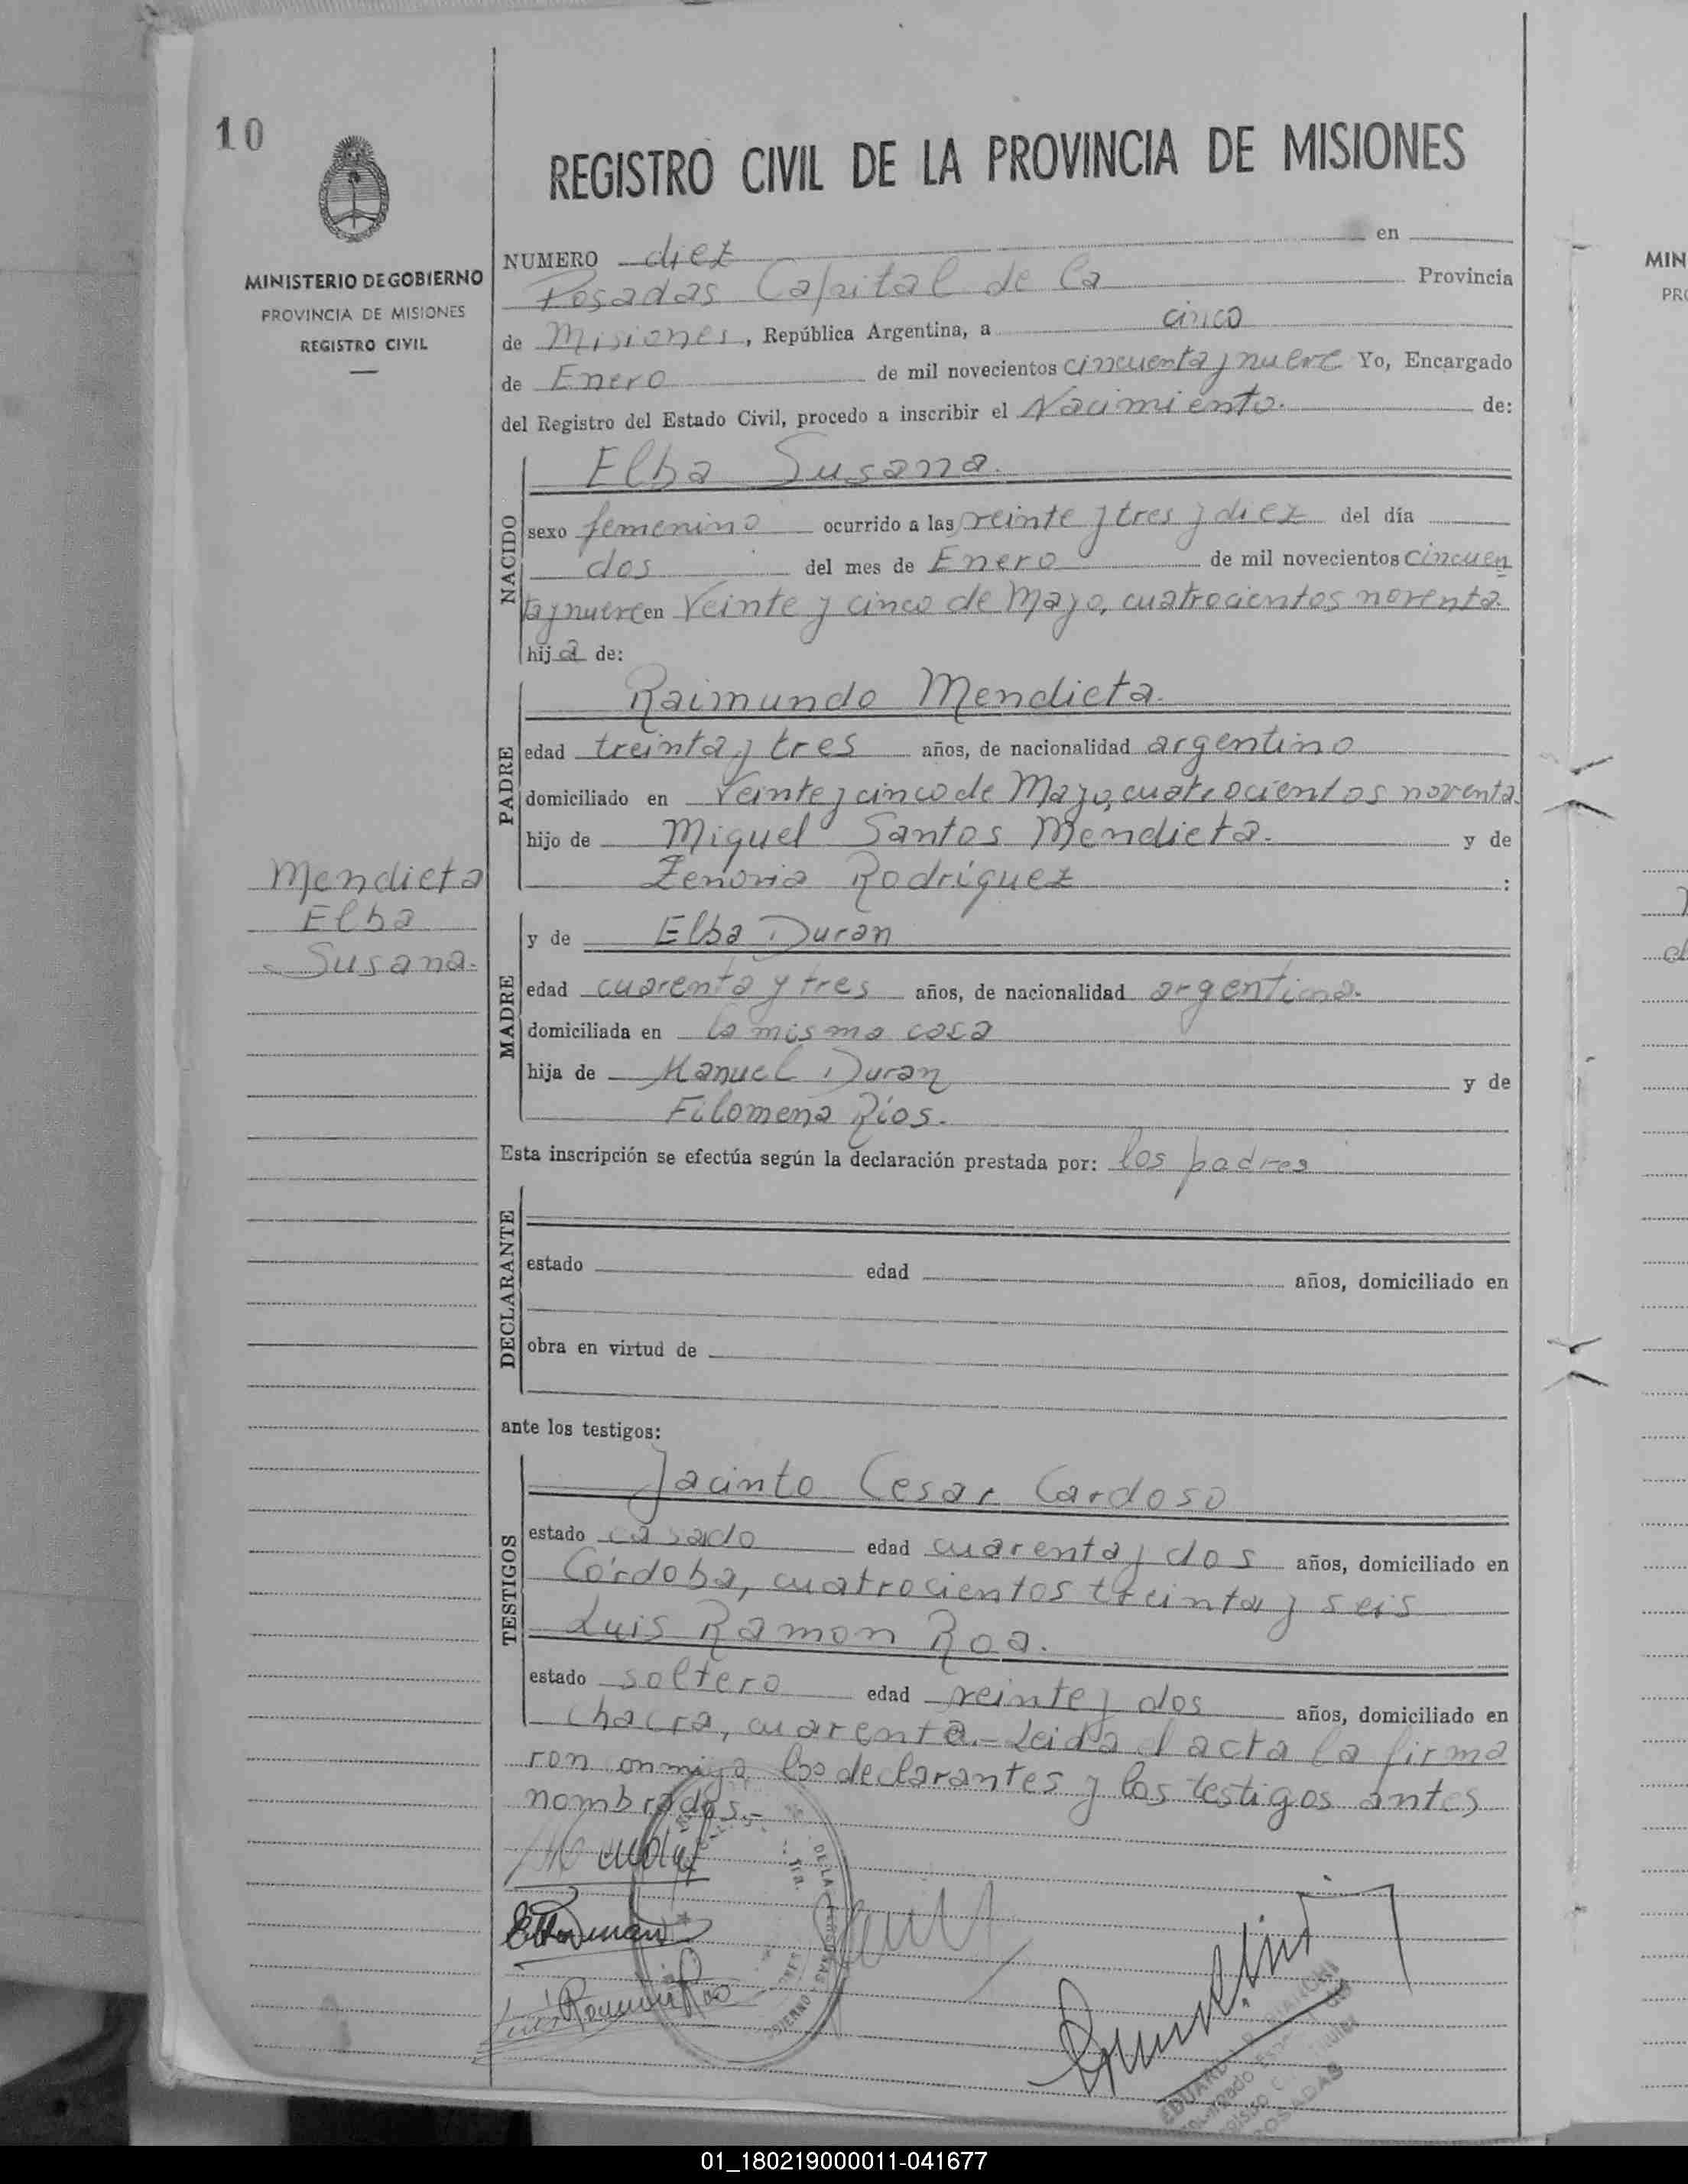 10
REGISTRO CIVIL DE LA PROVINCIA DE MISIONES
MINISTERIO DE GOBIERNO
PROVINCIA DE MISIONES
REGISTRO CIVIL
NUMERO diez en
Posadas Capital de la Provincia
de Misiones, República Argentina, a cinco
de Enero de mil novecientos cincuenta y nueve Yo, Encargado
del Registro del Estado Civil, procedo a inscribir el Nacimiento. de:
NACIDO
Elba Susana.
sexo femenino ocurrido a las veinte y tres y diez del día
dos del mes de Enero de mil novecientos cincuen
ta y nueve en Veinte y cinco de Mayo, cuatrocientos noventa.
hija de:
PADRE
Raimundo Mendieta.
edad treinta y tres años, de nacionalidad argentino
domiciliado en Veinte y cinco de Mayo, cuatrocientos noventa
hijo de Miguel Santos Mendieta. y de
Zenovia Rodríguez :
Mendieta
Elba
Susana.
MADRE
y de Elba Duran
edad cuarenta y tres años, de nacionalidad argentina.
domiciliada en la misma casa
hija de Manuel Duran y de
Filomena Ríos.
Esta inscripción se efectúa según la declaración prestada por: los padres
DECLARANTE
estado edad años, domiciliado en
obra en virtud de
ante los testigos:
TESTIGOS
Jacinto Cesar Cardoso
estado casado edad cuarenta y dos años, domiciliado en
Córdoba, cuatrocientos treinta y seis
Luis Ramon Roa.
estado soltero edad veinte y dos años, domiciliado en
chacra, cuarenta.- Leida el acta la firma
ron conmigo los declarantes y los testigos antes
nombrados.-
Luis Ramon Roa
DE LA
PERSONAS
1ra.
EDUARDO
POSADAS
MIN
PRO
01_180219000011-041677